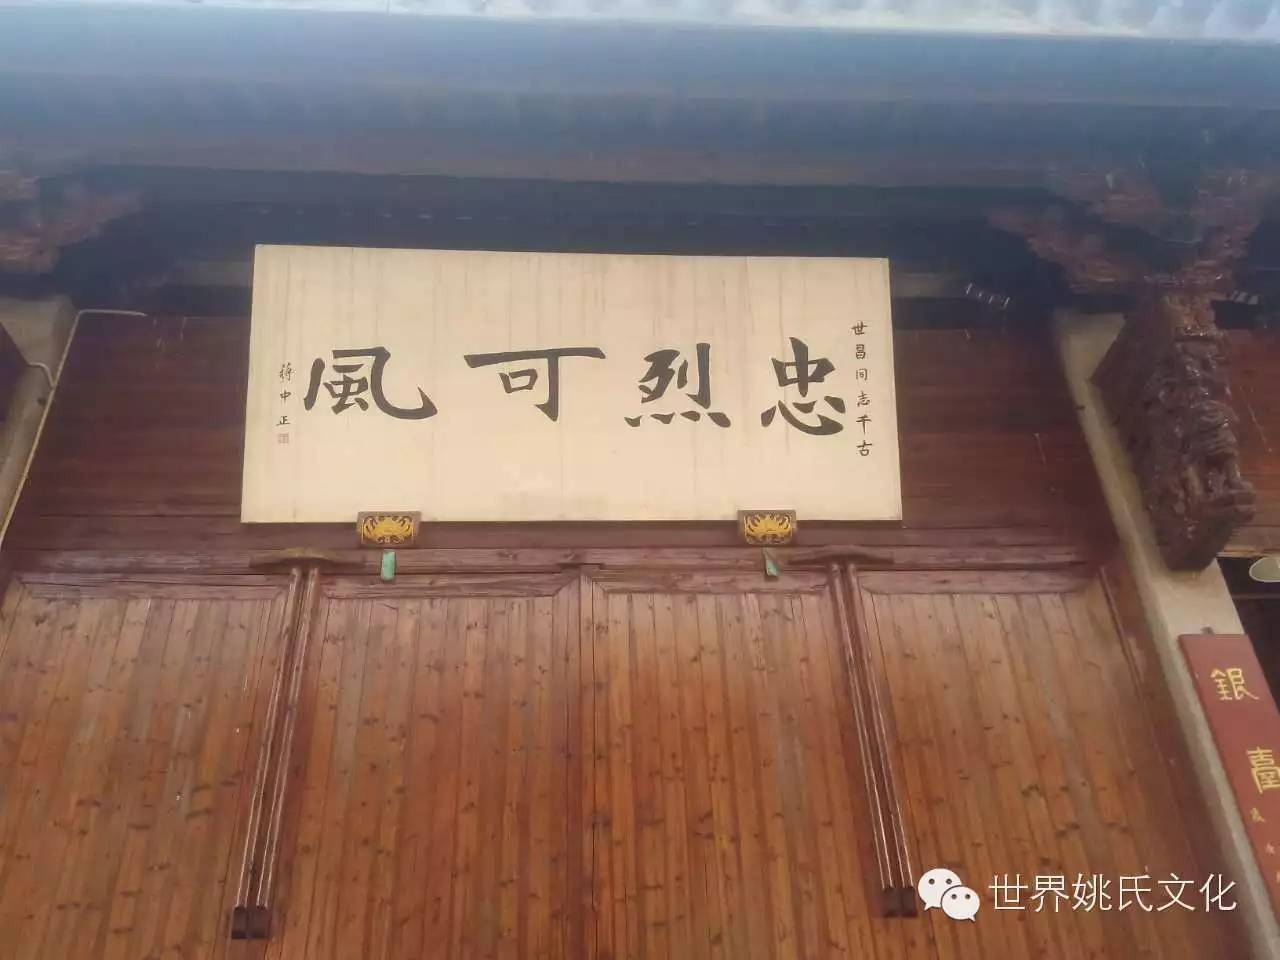 世昌同志千古
忠烈可風
蔣中正
銀臺
世界姚氏文化